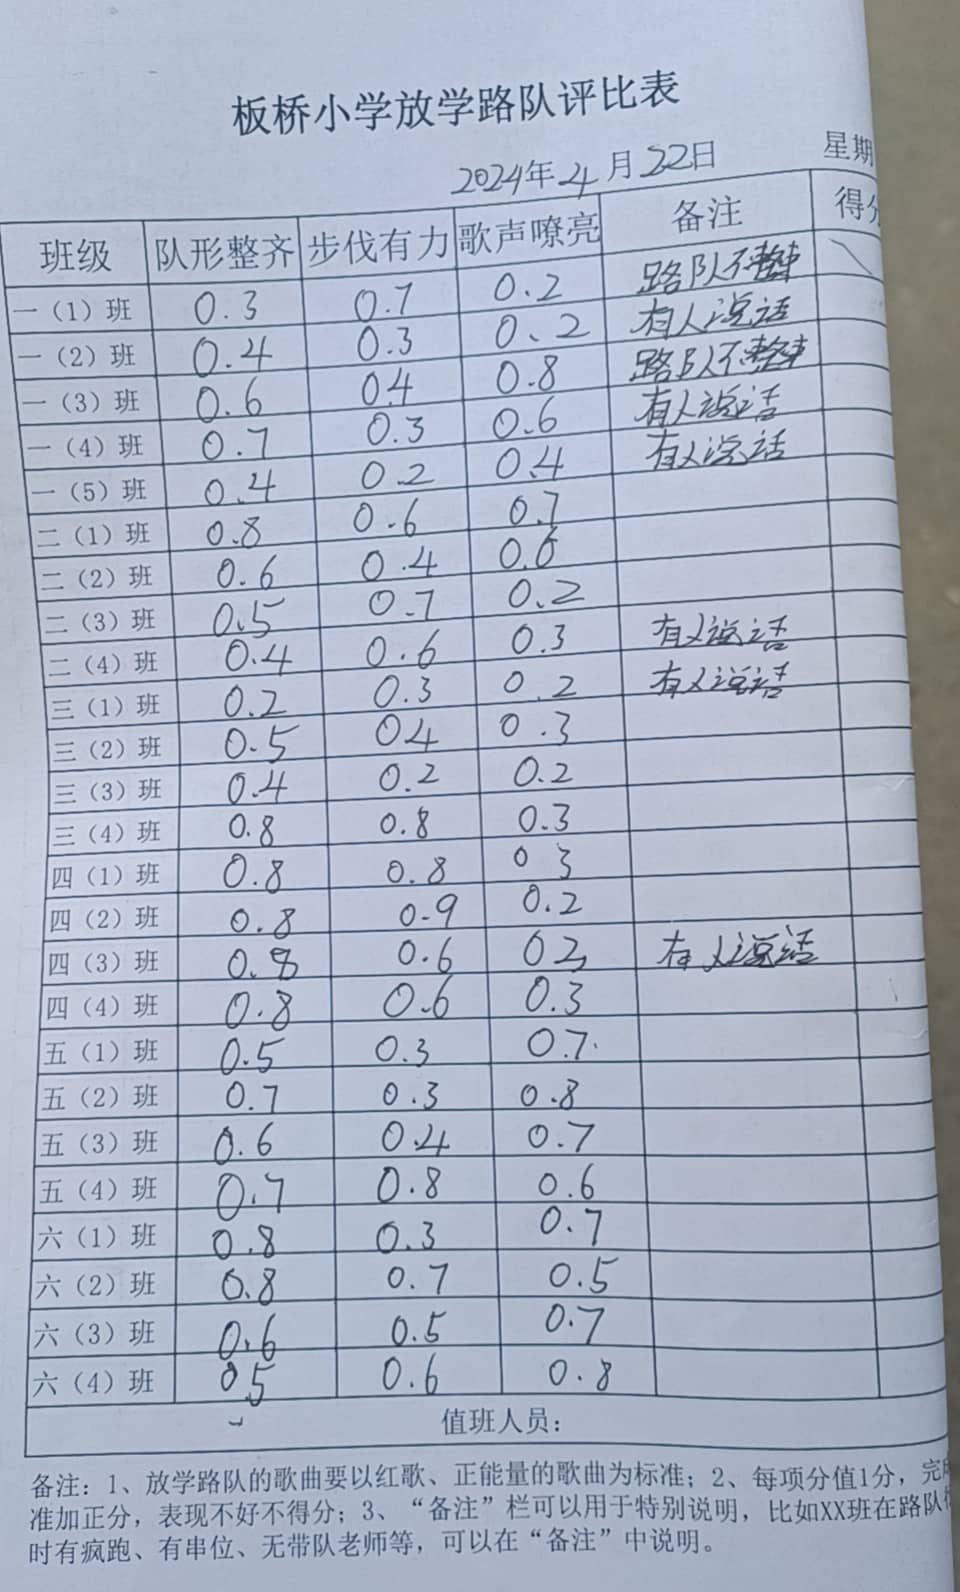 板桥小学放学路队评比表
2024年4月22日 星期
班级 队形整齐 步伐有力 歌声嘹亮 备注 得分
一（1）班 0.3 0.7 0.2 路队不整
一（2）班 0.4 0.3 0.2 有人说话
一（3）班 0.6 0.4 0.8 路队不整
一（4）班 0.7 0.3 0.6 有人说话
一（5）班 0.4 0.2 0.4 有人说话
二（1）班 0.8 0.6 0.7
二（2）班 0.6 0.4 0.6
二（3）班 0.5 0.7 0.2
二（4）班 0.4 0.6 0.3 有人说话
三（1）班 0.2 0.3 0.2 有人说话
三（2）班 0.5 0.4 0.3
三（3）班 0.4 0.2 0.2
三（4）班 0.8 0.8 0.3
四（1）班 0.8 0.8 0.3
四（2）班 0.8 0.9 0.2
四（3）班 0.8 0.6 0.2 有人说话
四（4）班 0.8 0.6 0.3
五（1）班 0.5 0.3 0.7
五（2）班 0.7 0.3 0.8
五（3）班 0.6 0.4 0.7
五（4）班 0.7 0.8 0.6
六（1）班 0.8 0.3 0.7
六（2）班 0.8 0.7 0.5
六（3）班 0.6 0.5 0.7
六（4）班 0.5 0.6 0.8
值班人员：
备注：1、放学路队的歌曲要以红歌、正能量的歌曲为标准；2、每项分值1分，完
准加正分，表现不好不得分；3、“备注”栏可以用于特别说明，比如XX班在路队
时有疯跑、有串位、无带队老师等，可以在“备注”中说明。